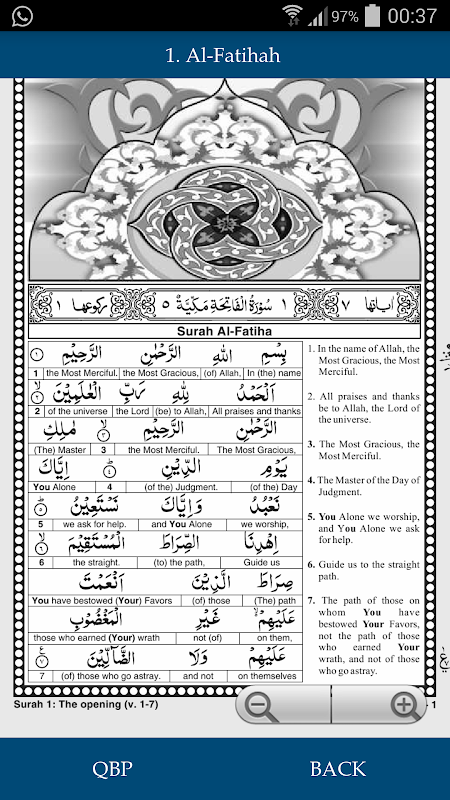 97% 00:37
1. Al-Fatihah
اٰیاتها ٧ ١ سُوْرَةُ الْفَاتِحَةِ مَكِّيَّةٌ ٥ ركوعها ١
Surah Al-Fatiha
بِسْمِ اللهِ الرَّحْمٰنِ الرَّحِيْمِ ١
1 the Most Merciful. the Most Gracious, (of) Allah, In (the) name
اَلْحَمْدُ لِلّٰهِ رَبِّ الْعٰلَمِيْنَ ٢
2 of the universe the Lord (be) to Allah, All praises and thanks
الرَّحْمٰنِ الرَّحِيْمِ ٣ مٰلِكِ
(The) Master 3 the Most Merciful. The Most Gracious,
يَوْمِ الدِّيْنِ ٤ اِيَّاكَ
You Alone 4 (of the) Judgment. (of the) Day
نَعْبُدُ وَاِيَّاكَ نَسْتَعِيْنُ ٥
5 we ask for help. and You Alone we worship,
اِهْدِنَا الصِّرَاطَ الْمُسْتَقِيْمَ ٦
6 the straight. (to) the path, Guide us
صِرَاطَ الَّذِيْنَ اَنْعَمْتَ
You have bestowed (Your) Favors (of) those (The) path
عَلَيْهِمْ غَيْرِ الْمَغْضُوْبِ
those who earned (Your) wrath not (of) on them,
عَلَيْهِمْ وَلَا الضَّآلِّيْنَ ٧
7 (of) those who go astray. and not on themselves
1. In the name of Allah, the
Most Gracious, the Most
Merciful.
2. All praises and thanks
be to Allah, the Lord of
the universe.
3. The Most Gracious, the
Most Merciful.
4. The Master of the Day of
Judgment.
5. You Alone we worship,
and You Alone we ask
for help.
6. Guide us to the straight
path.
7. The path of those on
whom You have
bestowed Your Favors,
not the path of those
who earned Your
wrath, and not of those
who go astray.
Surah 1: The opening (v. 1-7)
- 1
QBP BACK